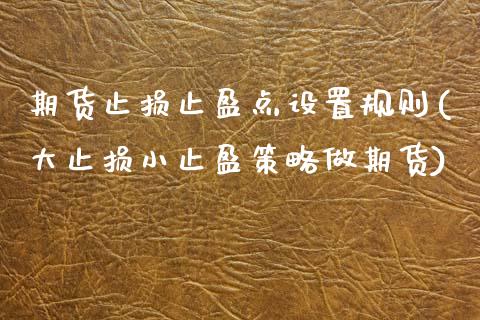 期货止损止盈点设置规则(
大止损小止盈策略做期货)